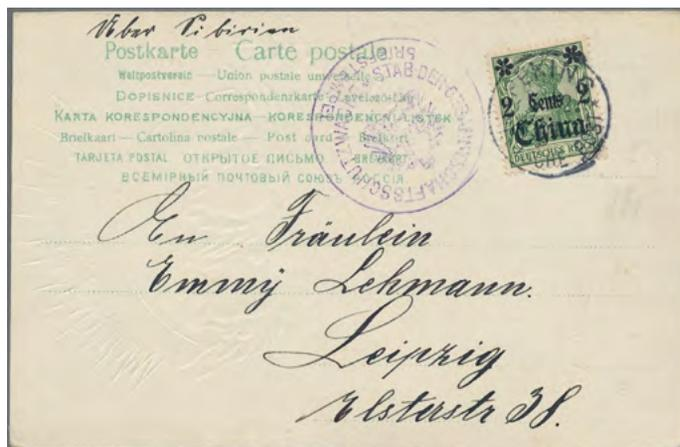 Über Sibirien
Postkarte — Carte postale
Weltpostverein — Union postale universelle
DOPISNICE - Correspondenzkarte - Levelező-lap
KARTA KORESPONDENCYJNA - KORESPONDENČNI LISTEK
Briefkaart — Cartolina postale — Post card — Brefkort
TARJETA POSTAL ОТКРЫТОЕ ПИСЬМО - BREVKORT
ВСЕМІРНЫЙ ПОЧТОВЫЙ СОЮЗЪ РОССІЯ
STAB DER GESANDTSCHAFTSSCHUTZWACHE
PEKING
2 Cents 2
China
DEUTSCHES REICH
An Fräulein
Emmy Lehmann.
Leipzig
Elsterstr 38.